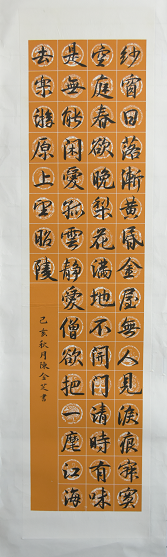 紗窗日落漸黄昏金屋無人見淚痕寂寞
空庭春欲晚梨花滿地不開門清時有味
是無能閑愛孤雲靜愛僧欲把一麾江海
去樂遊原上望昭陵
己亥秋月陳全芝書